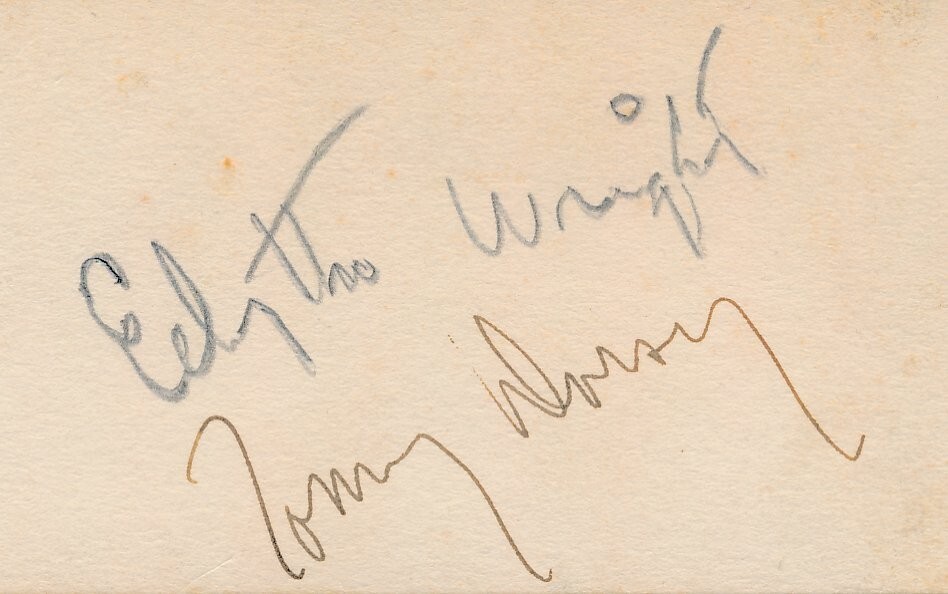 Edythe Wright
Tommy Dorsey